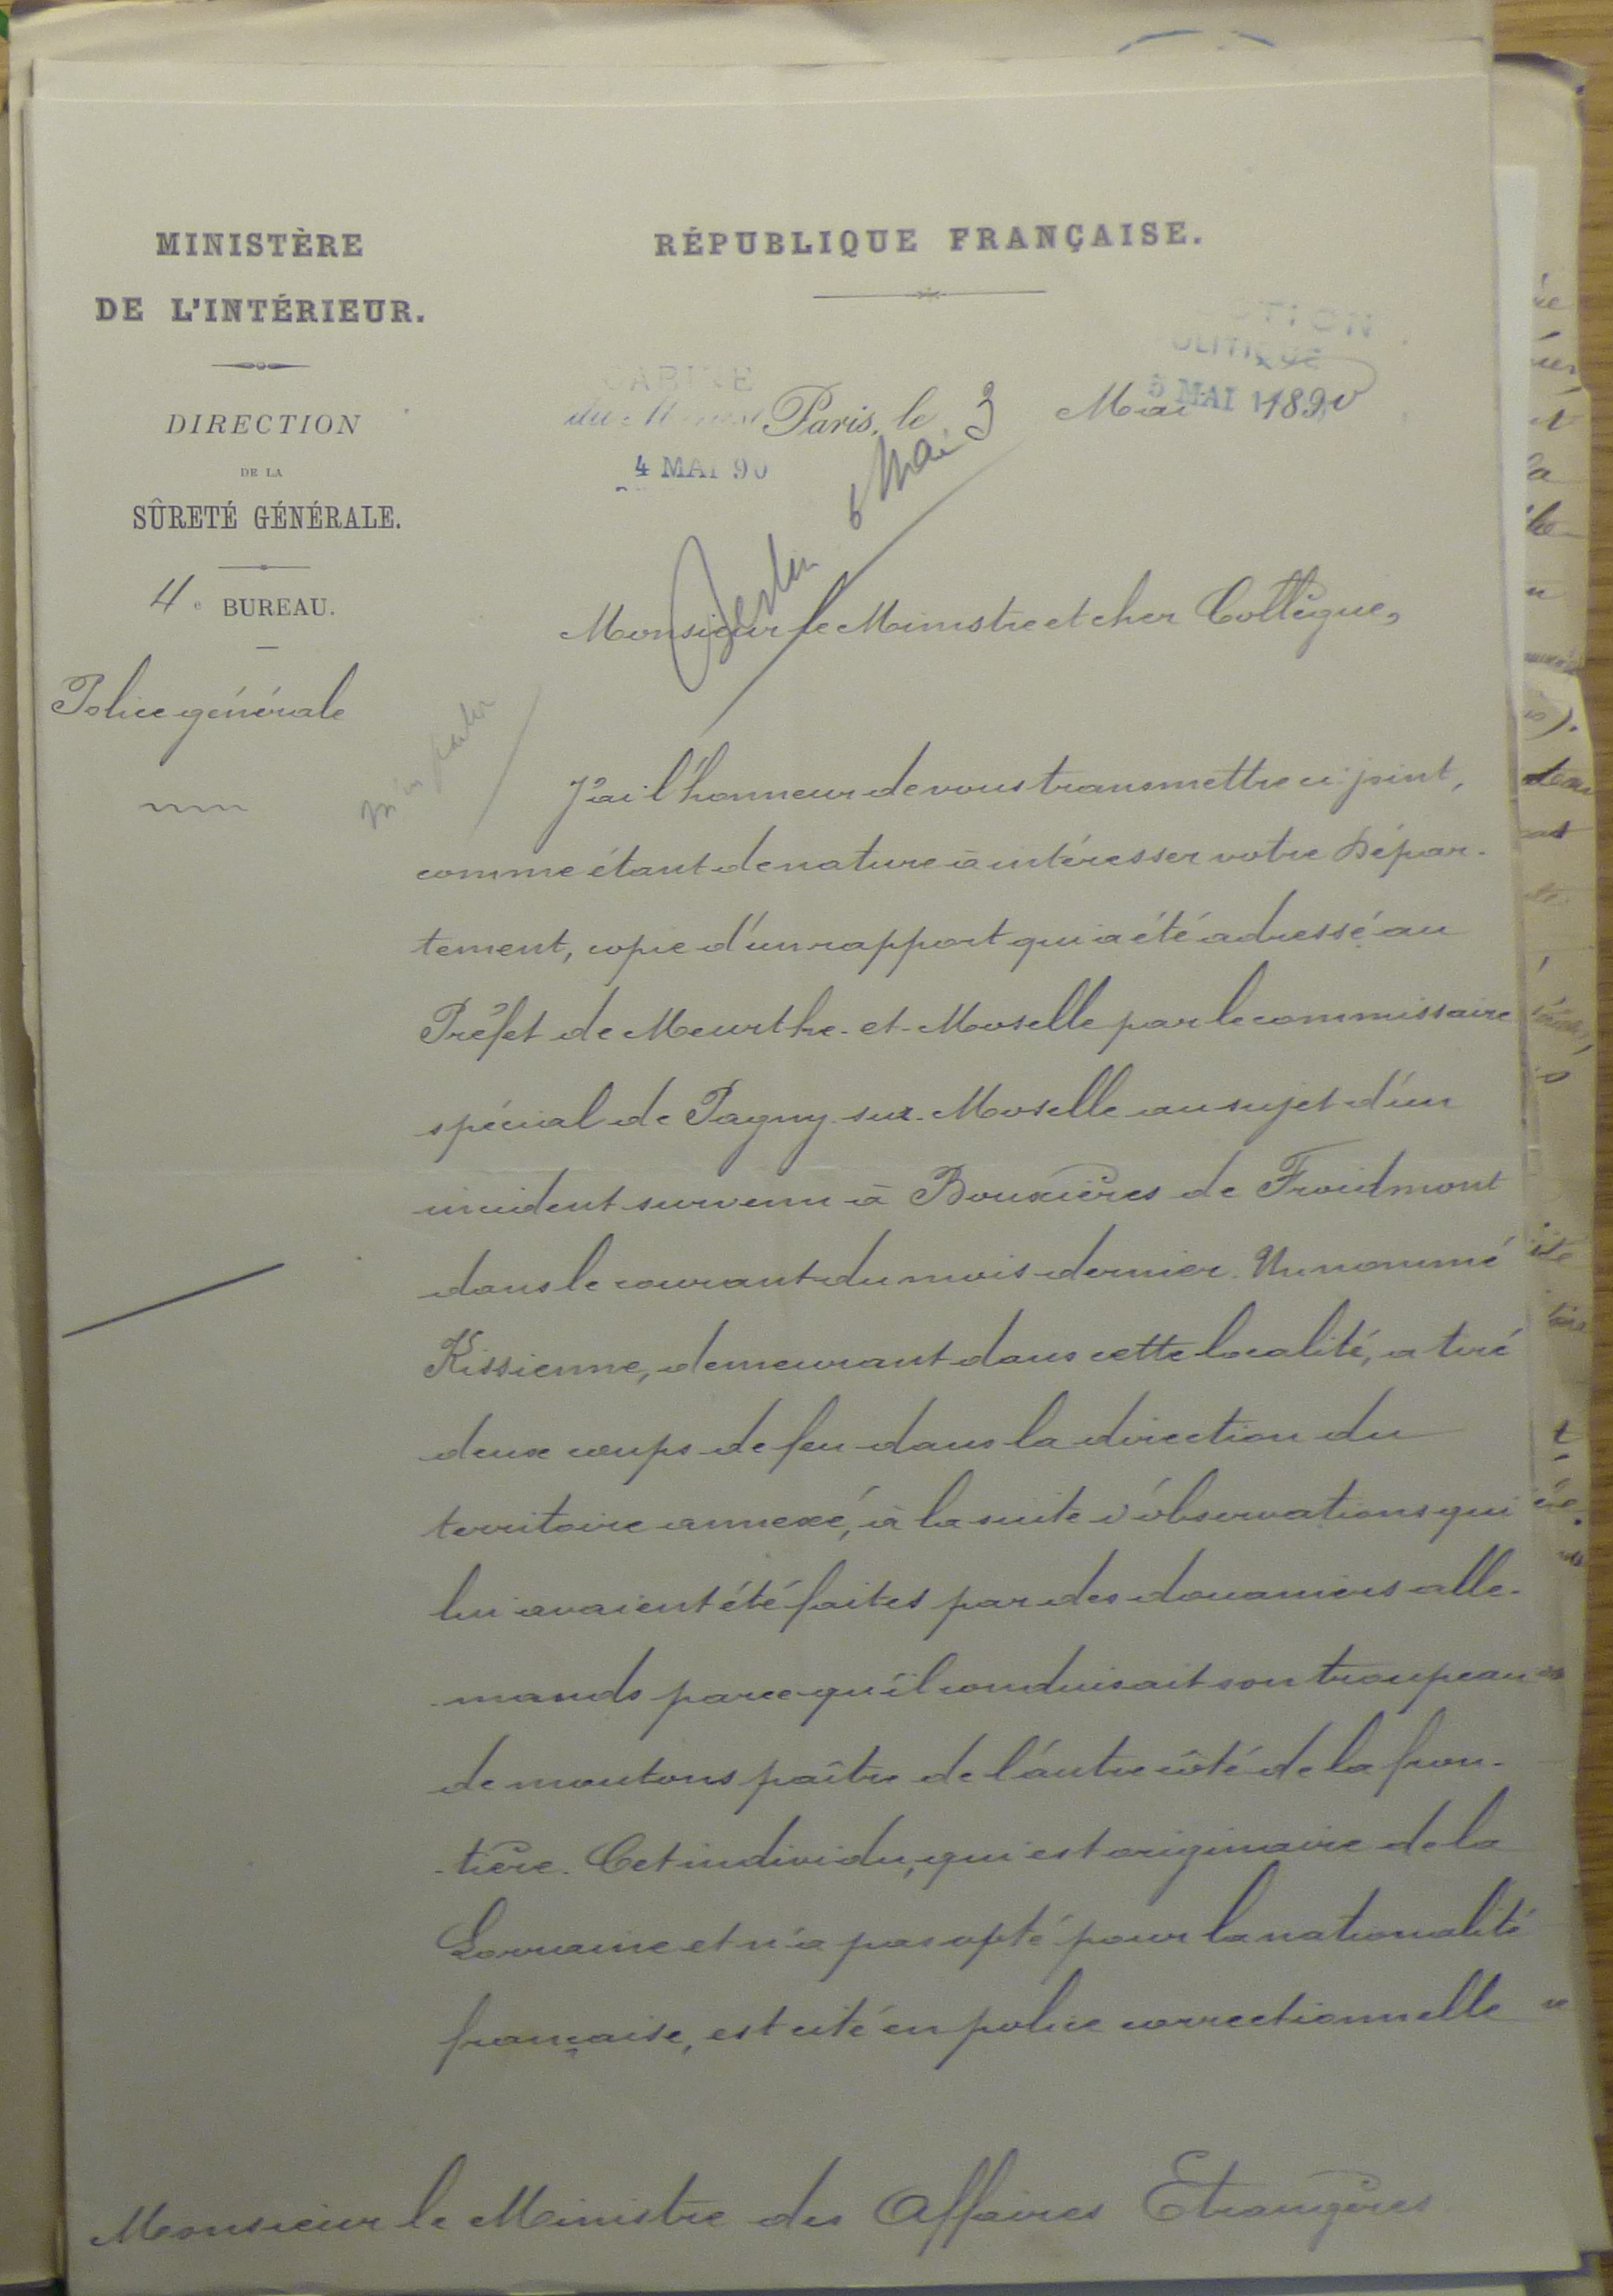 MINISTÈRE
DE L'INTÉRIEUR.
DIRECTION
DE LA
SÛRETÉ GÉNÉRALE.
4e BUREAU.
Police générale
RÉPUBLIQUE FRANÇAISE.
CABINE
du
4 MAI 90
OLITIQUE
5 MAI
Paris, le 3 Mai 1890
Berlin 6 Mai
Monsieur le Ministre et cher Collègue,
m'en parler
J'ai l'honneur de vous transmettre ci-joint,
comme étant de nature à intéresser votre Dépar-
tement, copie d'un rapport qui a été adressé au
Préfet de Meurthe-et-Moselle par le commissaire
spécial de Pagny-sur-Moselle au sujet d'un
incident survenu à Bouxières de Froidmont
dans le courant du mois dernier. Un nommé
Kissienne, demeurant dans cette localité, a tiré
deux coups de feu dans la direction du
territoire annexé, à la suite d'observations qui
lui avaient été faites par des douaniers alle-
-mands parce qu'il conduisait son troupeau
de moutons paître de l'autre côté de la fron-
-tière. Cet individu, qui est originaire de la
Lorraine et n'a pas opté pour la nationalité
française, est cité en police correctionnelle
Monsieur le Ministre des Affaires Etrangères